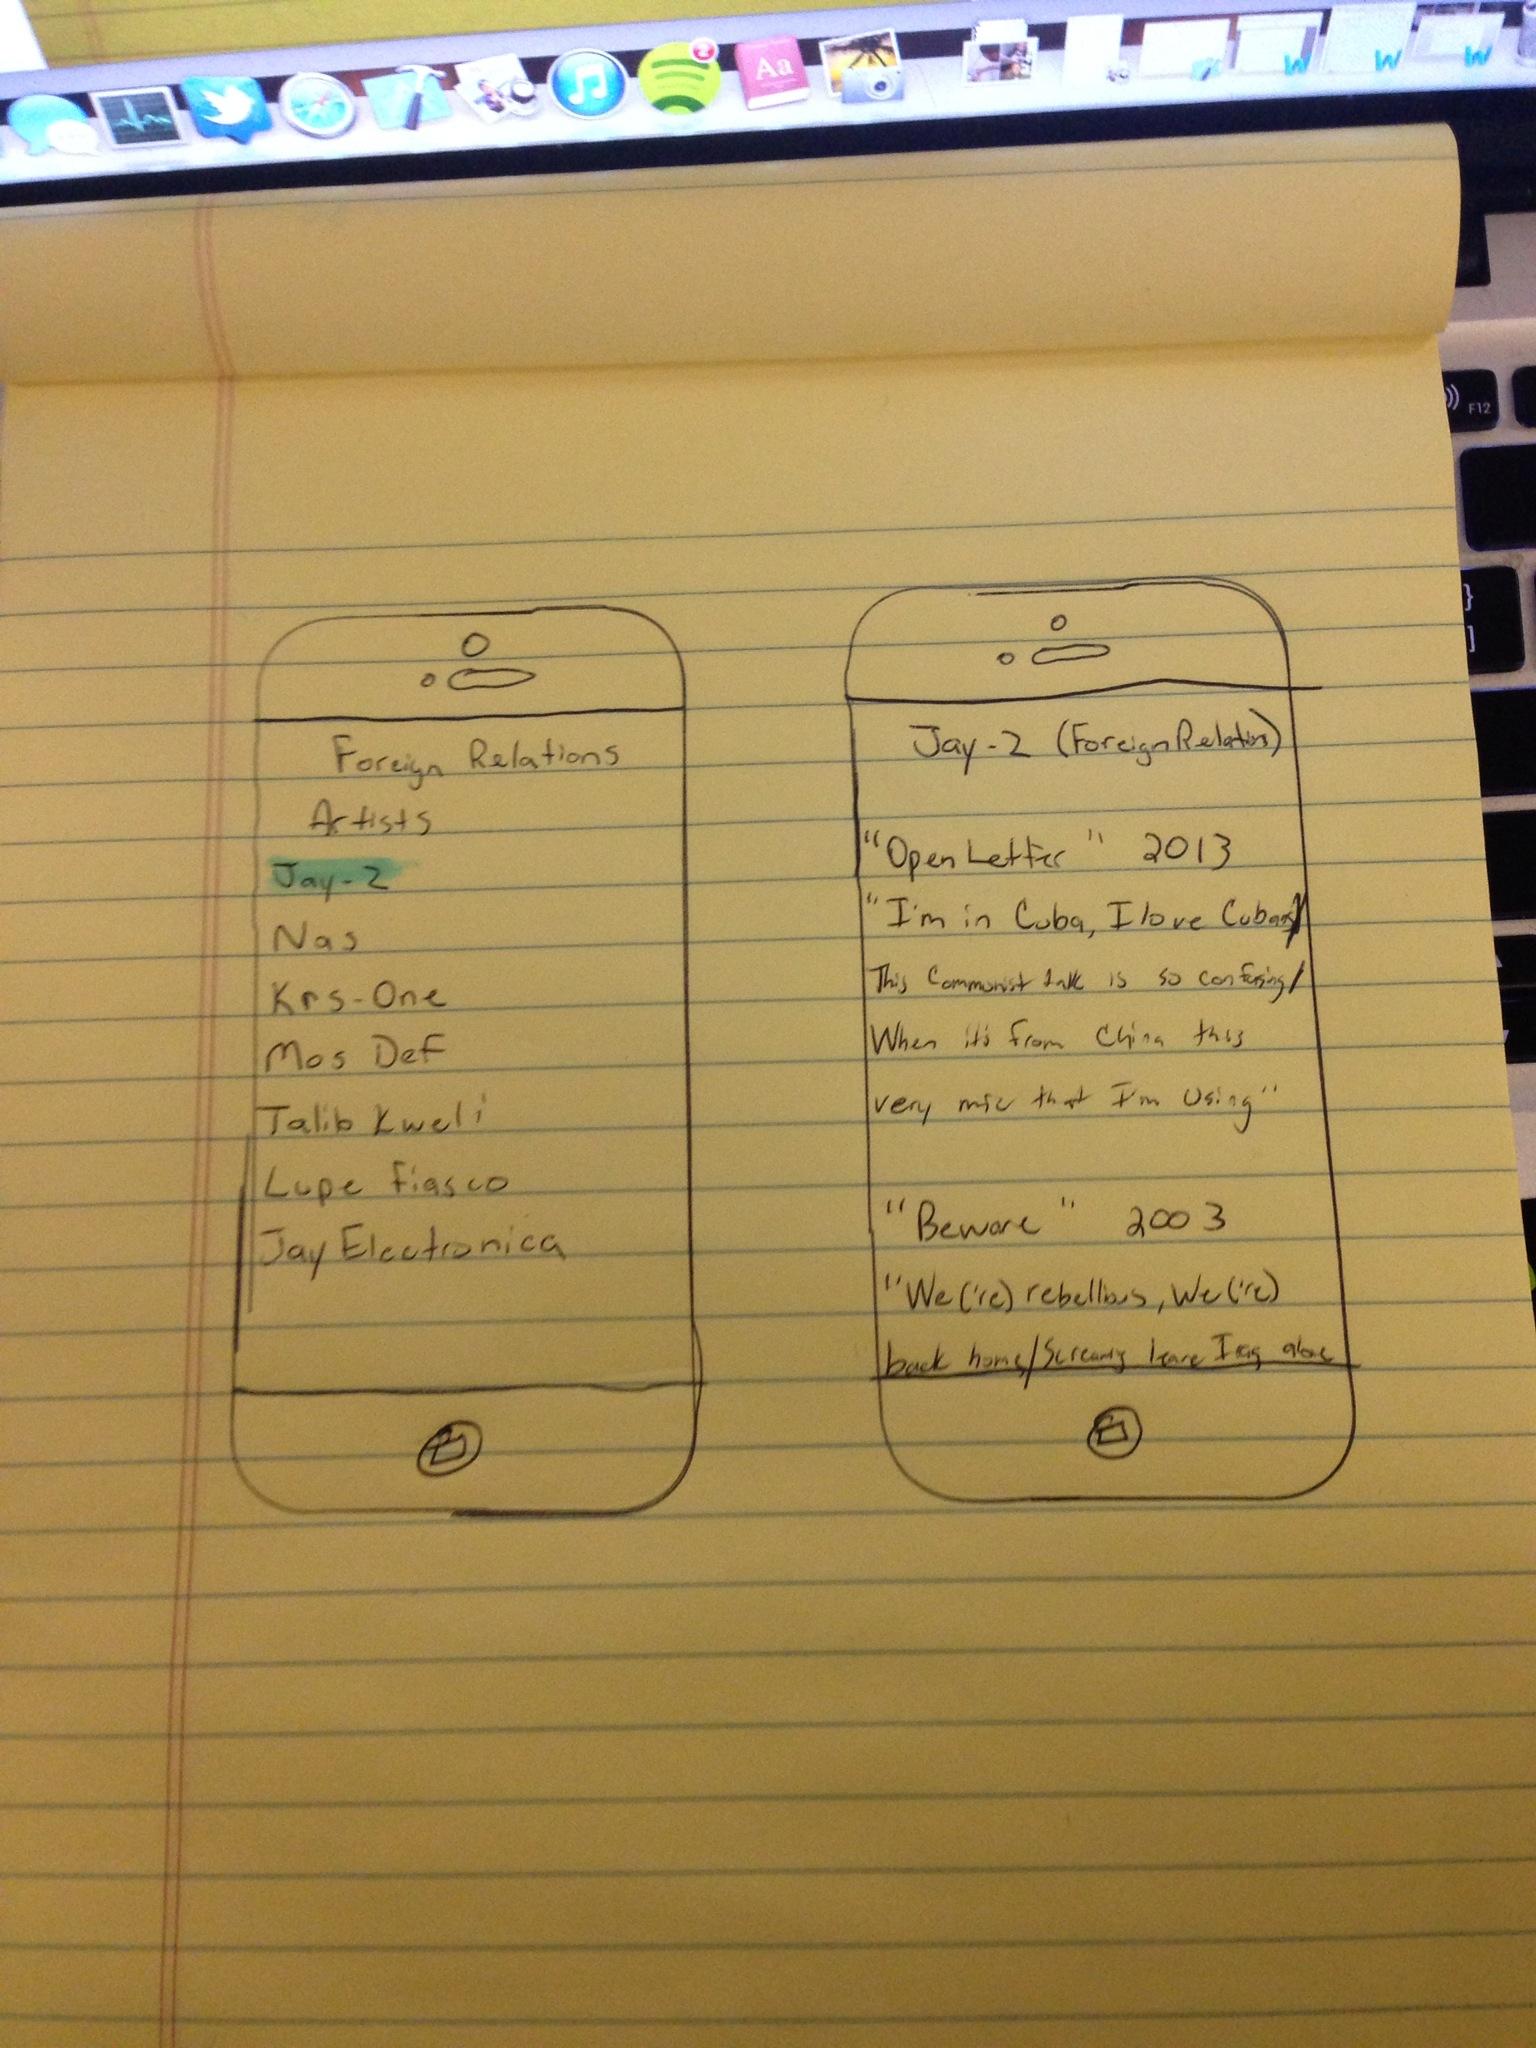 2
Aa
W
W
W
F12
}
]
Foreign Relations
Artists
Jay-Z
Nas
Krs-One
Mos Def
Talib Kweli
Lupe Fiasco
Jay Electronica
Jay-Z (Foreign Relations)
"Open Letter" 2013
"I'm in Cuba, I love Cubans/
This Communist talk is so confusing/
When it's from China this
very mic that I'm using"
"Beware" 2003
"We('re) rebellious, We('re)
back home/Screaming leave Iraq alone